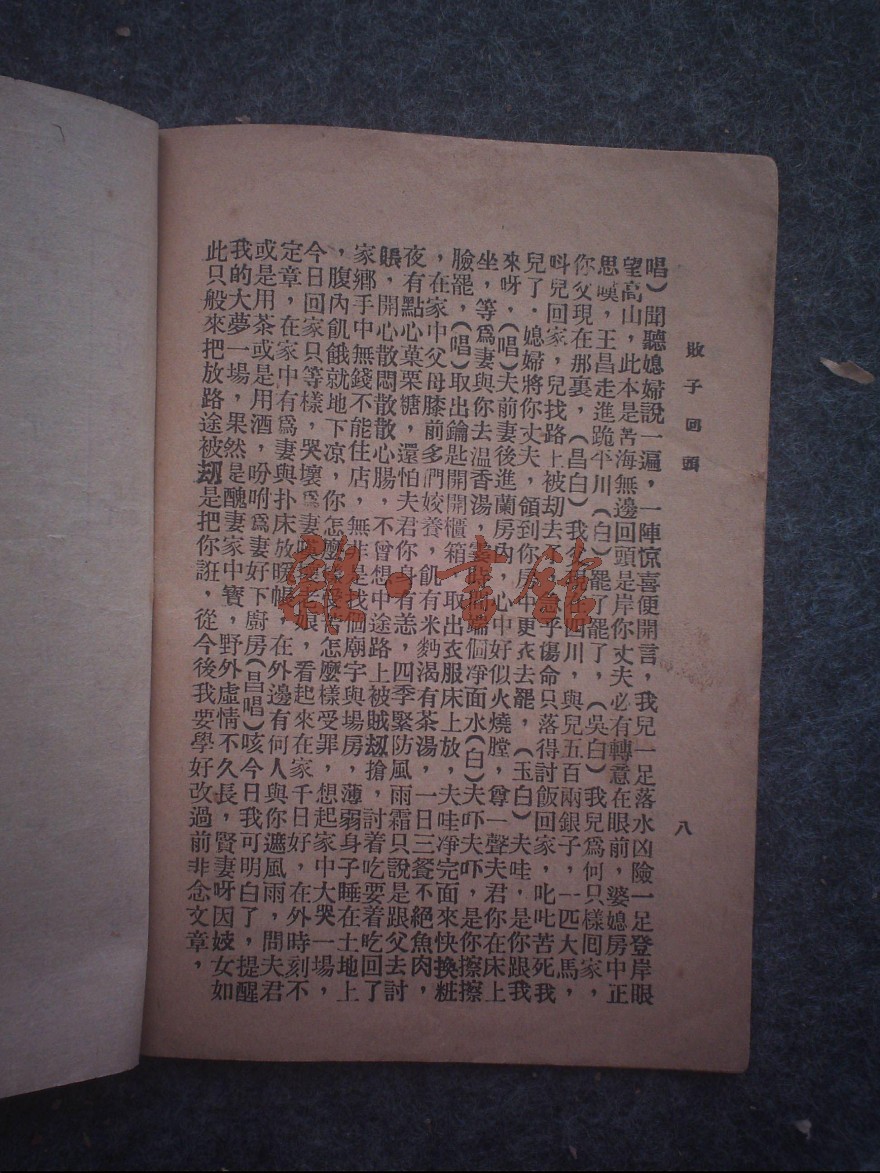 敗子回頭
八
唱）聞聽媳婦說一遍，一陣惊喜便開言，我兒一足落水凶險一足登岸眼
望高山，此本是苦海無邊回頭是岸你丈夫必有轉意在眼前，婆媳房中正
思嘆，王昌走進跪平川（白）罷了罷了，（吳白）我兒爲何只樣回家，
你父現在那裏，（昌白）我父現在四川，與兒五百兩銀子，一匹大馬，
呌兒回家，兒找路上被劫去不乎傷命只落得討飯回家，叱叱苦死我
兒了．媳婦將你丈夫，領到你房中更衣去罷，（玉白）夫哇，是你跟我
來呀，（唱）夫前妻後進蘭房內，心中好似火燒膛，尊一聲夫君你在床上
坐，等爲妻與你去温香湯，霎時間端個凈面水（白）夫吓夫吓，是你擦擦
臉罷，（唱）取出鑰匙開開櫃箱，取出衣服床上放，夫哇凈完面來快換粧
，在家中父母膝前多們姣養，飢有米麪渴有茶湯，一日三餐不絕魚肉，
夜有點心菓栗糖，還怕夫君你身有恙，四季緊防風雨霜只說是跟父去討
賬，開心散悶散散心腸，不曾想中途路上被賊刼搶，討着吃要着吃回了
家鄉手中無錢不能住店，無非是找個廟宇與場房，薄弱身子睡在土地上
，腹內飢餓就地下凉，你怎麼受苦怎麼樣受罪，想起家中大哭一場，
今日回家只等樣，哭壞爲妻嘆老娘，看起來在家千日好，在外時刻不
定章，在家中有爲妻與扑床放暖帳，在外邊有何人與你遮風雨，問夫君
或是用茶或是用酒，吩咐爲妻好下廚房（昌唱）咳今日我可明白了，提醒
我的大夢一場，果然是醜妻家中寳，野外虛情不久長，賢妻呀因妓女如
此只般來把放路途被刼是把你誑，從今後我要學好改過前非念文章，
雜·書館